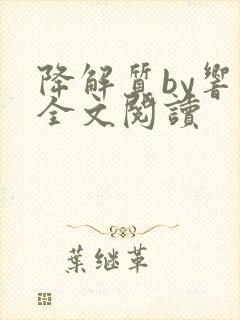 降解質by響
全文閱讀
葉继革